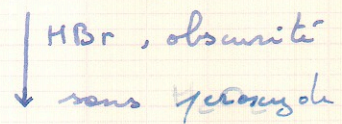 HBr, obscurité
sans peroxyde